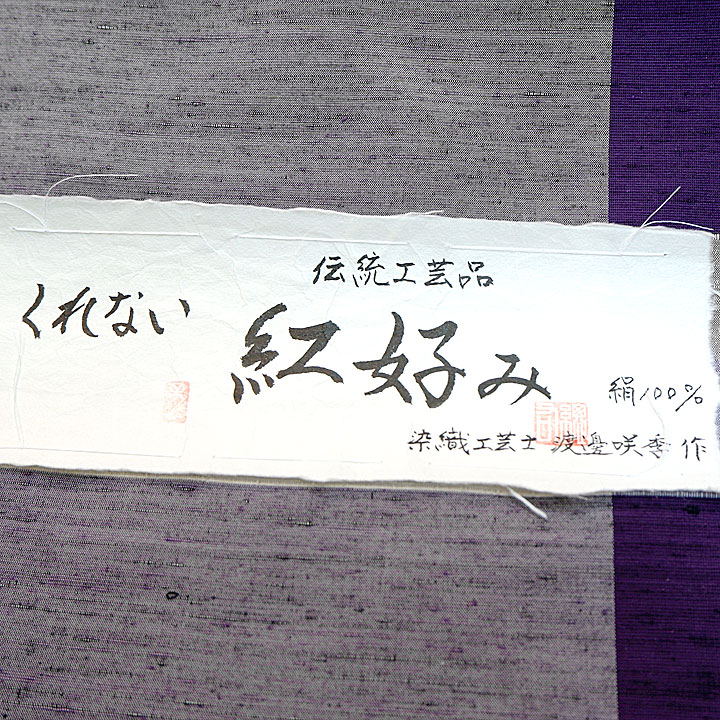 伝統工芸品
くれない
紅好み
絹100%
染織工芸士 渡邊咲季 作